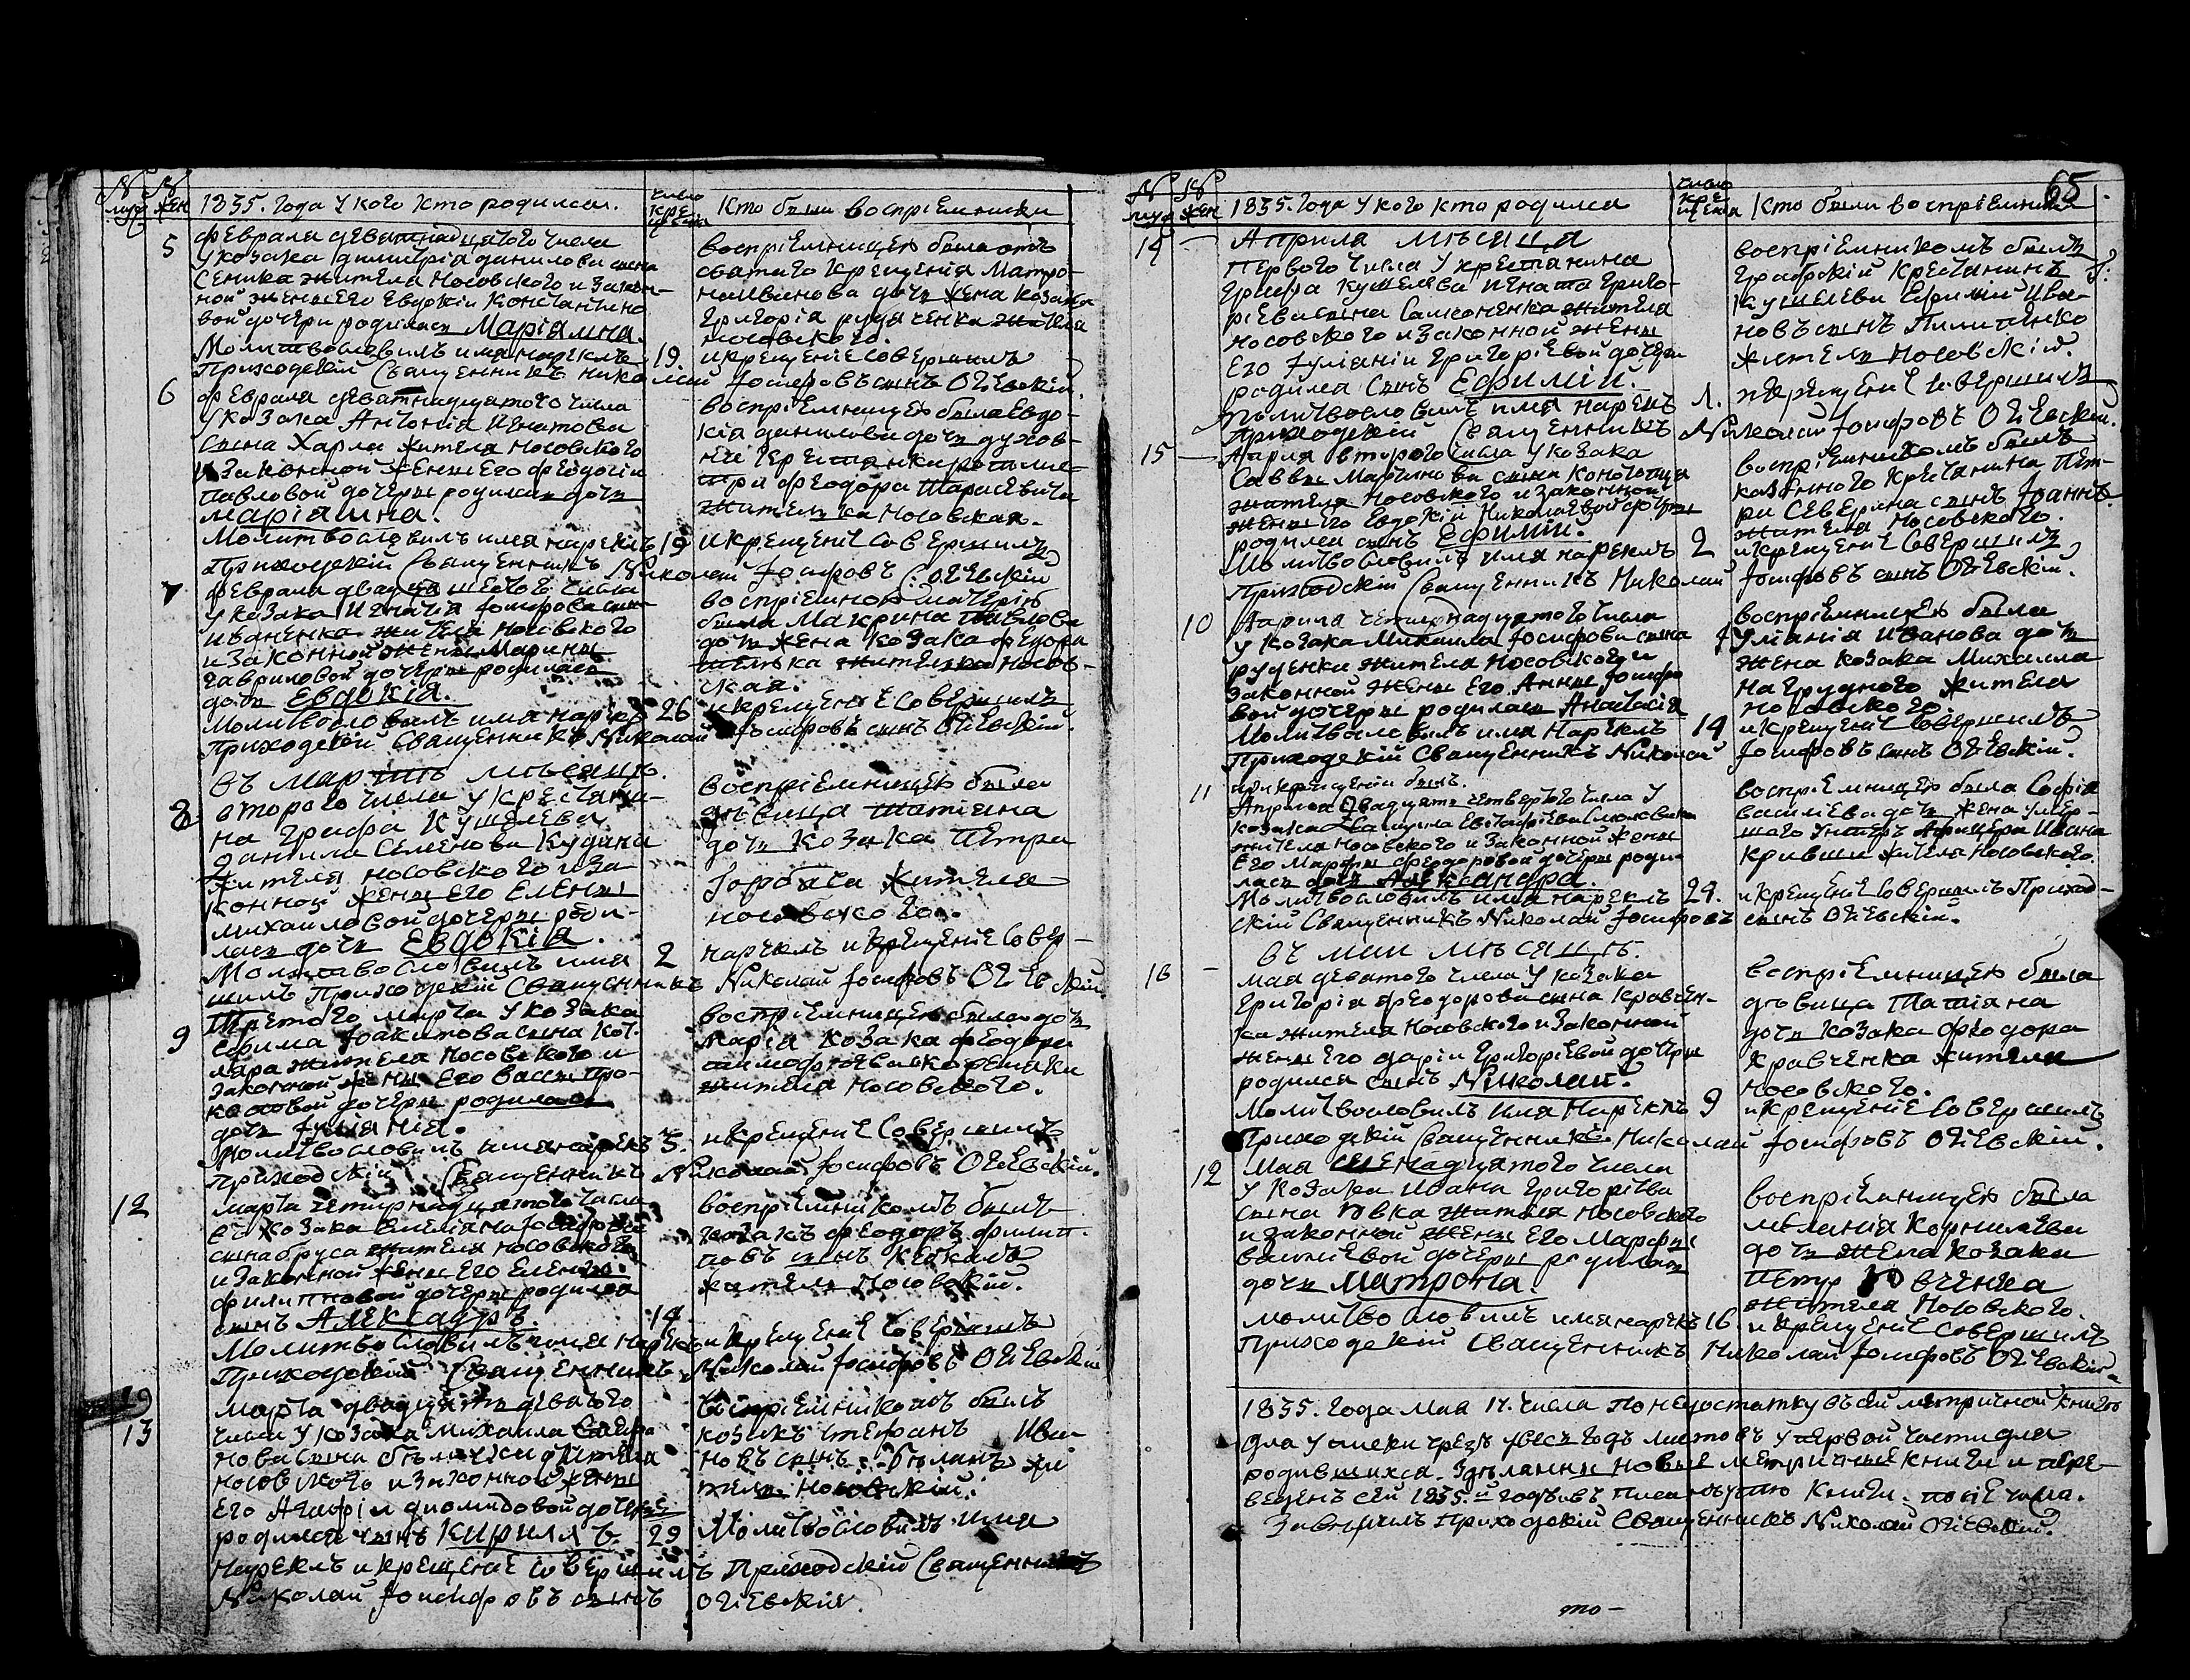 N N
муж жен 1835. Года У кого кто родился. число кре щенія Кто были воспріемники
5
февраля девятнадцатого числа
У козака Димитрія данилова сына
Сеника жителя Носовского и Закон-
ной жены Его Евдокіи Константино
вой дочери родилась Маріамна.
Молитвословилъ имя нареклъ 19.
Приходскій Священникъ Николай
воспріемницею была отъ
святаго Крещенія Матро-
на Иванова дочь жена козака
Григорія рудченка жителя
носовского.
и крещеніе совершилъ
Іосифовъ сынъ Огіевскій.
6
февраля девятнадцатого числа
У козака Антонія Игнатова
сына Харла жителя Носовского
и Законной жены Его феодосіи
павловой дочери родилась дочь
Маріамна.
Молитвословилъ имя нареклъ 19
Приходскій Священникъ Николай
воспріемницею была Евдо-
кія данилова дочь
феодора Тарасевича
жителька Носовская.
и крещеніе Совершилъ
Іосифовъ С: Огіевскій
7
февраля двадцать шестого числа
у козака Игнатія Іосифова сына
иваненка жителя Носовского
и Законной жены Марины
гавриловой дочери родилась
дочь Евдокія.
Молитвословилъ имя нареклъ 26
приходскій Священникъ Николай
воспріемною матерію
была Макрина Павлова
дочь жена козака Федора
жителька Носов-
ская.
и крещеніе Совершилъ
Іосифовъ сынъ Огіевскій.
въ мартъ мѣсяцъ.
8
второго числа у крестьяни-
на Графа Кушелева
Даніила Семенова Кудина
жителя носовского и За-
конной жены Его Елены
михаиловой дочери роди-
лась дочь Евдокія.
Молитвословилъ имя 2
шилъ Приходскій Священникъ
воспріемницею была
дѣвица Татіана
дочь козака Петра
Горбача жителя
носовского.
нареклъ и крещеніе Совер-
Николай Іосифовъ Огіевскій
9
Третого марта У козака
Ефима Іоакимова сына Кот-
ляра жителя Носовского и
законной жены Его Вассы про-
коповой дочери родилась
дочь Іуліанія.
Молитвословилъ имя нареклъ 3.
приходскій Священникъ
воспріемницею была дочь
Марія козака феодора
тимофѣева
жителя носовского.
и крещеніе Совершилъ
Николай Іосифовъ Огіевскій.
12
марта четырнадцатого числа
козака Емеліана Іосифова
сына бруса жителя носовского
и Законной жены Его Елены
филиповой дочери родился
сынъ Александръ. 14
Молитвословилъ имя нареклъ
Приходскій Священникъ
воспріемникомъ былъ
козакъ феодоръ филип-
повъ сынъ
житель Носовскій.
и крещеніе Совершилъ
Николай Іосифовъ Огіевскій
19
13
марта двадцать девятого
числа у козака Михаила
нова сына жителя
носовского и законной жены
Его Агафіи диомидовой дочери
родился сынъ Кирилъ 29
нареклъ и крещеніе совершилъ
Николай Іосифовъ сынъ
воспріемникомъ былъ
козакъ Стефанъ Ива
новъ сынъ жи
тель Носовскій.
Молитвословилъ имя
Приходскій Священникъ
Огіевскій.
65
N N
муж жен 1835. Года У кого кто родился число кре щенія Кто были воспріемники
14 —
Априля мѣсяця
Первого числа У крестянина
Графа Кушелева Игната Григо-
ріева сына жителя
носовского и законной жены
Его Іуліаніи Григоріевой дочери
родился сынъ Ефимій.
Молитвословилъ имя нарекъ 1.
Приходскій Священникъ
воспріемникомъ былъ
Графскій крестянинъ
Кушелева Ефимій Ива-
новъ сынъ Пилипенко
житель Носовскій.
и крещеніе совершилъ
Николай Іосифовъ Огіевскій.
15 —
Апрля второго числа у козака
Саввы Мартинова сына Конотопца
жителя Носовского и законной
жены Его Евдокіи Николаевой дочери
родился сынъ Ефимій.
Молитвословилъ имя нареклъ 2
Приходскій Священникъ Николай
воспріемникомъ былъ
казенного крестянина Пет-
ра Северина сынъ Іоаннъ
жителя Носовского.
и крещеніе совершилъ
Іосифовъ сынъ Огіевскій.
10
Априля четырнадцятого числа
у козака Михаила Іосифова сына
руденка жителя Носовского и
законной жены Его Анны Іосифо
вой дочери родилась Анастасія
Молитвословилъ имя Нареклъ 14
Приходскій Священникъ Николай
воспріемницею была
Іуліанія Иванова дочь
жена козака Михаила
Нагрудного жителя
Носовского.
и крещеніе Совершилъ
Іосифовъ сынъ Огіевскій.
11
при крещеніи былъ.
Априля двадцать четвертого числа У
козака
жителя Носовского и Законной жены
Его Марфы феодоровой дочери роди-
лась дочь Александра.
Молитвословилъ имя нареклъ 24.
скій Священникъ Николай Іосифовъ
воспріемницею была Софія
василіева дочь жена умер-
шаго Унтеръ Афицера Ивана
кривши жителя Носовского.
и крещеніе Совершилъ Приход-
сынъ Огіевскій.
въ маи мѣсяцѣ.
16 —
мая девятого числа У козака
Григорія феодорова сына Кравчен-
ка жителя Носовского и Законной
жены Его даріи Григоріевой дочери
родился сынъ Николай.
Молитвословилъ имя Нареклъ 9
Приходскій Священникъ Николай
воспріемницею была
дѣвица Татіяна
дочь козака феодора
Кравченка жителя
Носовского.
и крещеніе Совершилъ
Іосифовъ Огіевскій.
12
Мая числа
У козака Ивана Григоріева
сына Вовка жителя Носовского
и законной жены Его Марфы
василіевой дочери родилась
дочь Матрона.
молитвословилъ имя нареклъ 16.
Приходскій Священникъ
воспріемницею была
меланія Корнилѣева
дочь жена козака
Петра Вовченка
жителя Носовского.
и крещеніе совершилъ
Николай Іосифовъ Огіевскій.
1835. Года Мая 17. числа по недостатку въ сей метричной книге
для у чрезъ увесь годъ листовъ у первой части для
родившихся. Здѣланы новые метричные книги и пере-
веденъ сей 1835.й годъ въ книги. по сіе числа.
Завершилъ Приходскій Священникъ Николай Огіевскій.
то-